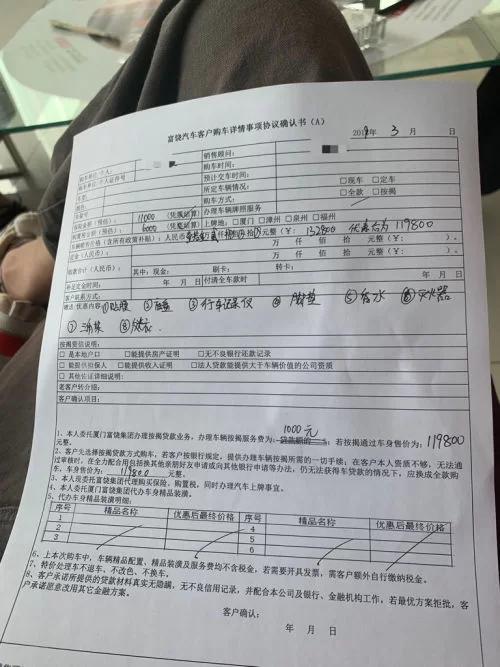 富饶汽车客户购车详情事项协议确认书（A）
年 3 月 日
购车单位/个人：
销售顾问：
购车单位/个人证件号
购车时间：
车型：
预计交车时间：
颜色：
所定车辆情况： □现车 □定车
购车方式： □全款 □按揭
保险金额（预估）：11000（凭票结算）
办理车辆牌照服务
购置税金额（预估）：6000（凭票结算）
上牌地：□厦门 □漳州 □泉州 □福州
车辆销售价格（含所有政策补贴）：人民币 元整（¥：132800 优惠后为119800
定金（人民币）： 万 仟 佰 拾 元整（¥： ）。
万 仟 佰 拾 元整（¥： ）。
收款合计（人民币）：
其中，现金： 刷卡： 转卡：
补足定金时间： 年 月 日 付清全车款时 年 月 日
客户联系方式：
赠送/优惠内容：①贴膜 ② ③行车记录仪 ④脚垫 ⑤香水 ⑥灭火器
⑦ ⑧
按揭资信说明：
□是本地户口 □能提供房产证明 □无不良银行还款记录
□能提供担保人 □能提供收入证明 □法人贷款能提供大于车辆价值的公司资质
□其他佐证详细说明：
老客户转介绍：
客户确认项目：
1000元
1、本人委托厦门富饶集团办理按揭贷款业务，办理车辆按揭服务费为： 贷款额的 ；若按揭通过车身售价为：119800
元整。
2、客户先选择按揭贷款方式购车，若客户按银行规定，提供办理车辆按揭所需的一切手续；在客户本人资质不够，无法通
过审核时，在全力配合用包括换其他亲朋好友申请或向其他银行申请等办法，仍无法获得车贷款的情况下，应换成全款购
车，车身售价为：119800元整。
3、本人现委托富饶集团代理购买保险，购置税，同时办理汽车上牌事宜。
4、本人委托厦门富饶集团代办车身精品装潢。
5、代办车身精品装潢明细：
序号 精品名称 优惠后最终价格 序号 精品名称 优惠后最终价格
1 4
2 5
3 6
6、上本次购车中，车辆精品配置、精品装潢及服务费均不含税金，若需要开具发票，需客户额外自行缴纳税金。
7、特价处理车不退车、不改色、不换车。
8、客户承诺所提供的贷款材料真实无隐瞒，无不良信用记录，并配合本公司及银行、金融机构工作，若最优方案拒批，客
户承诺愿意改用其它金融方案。
客户确认：
年 月 日